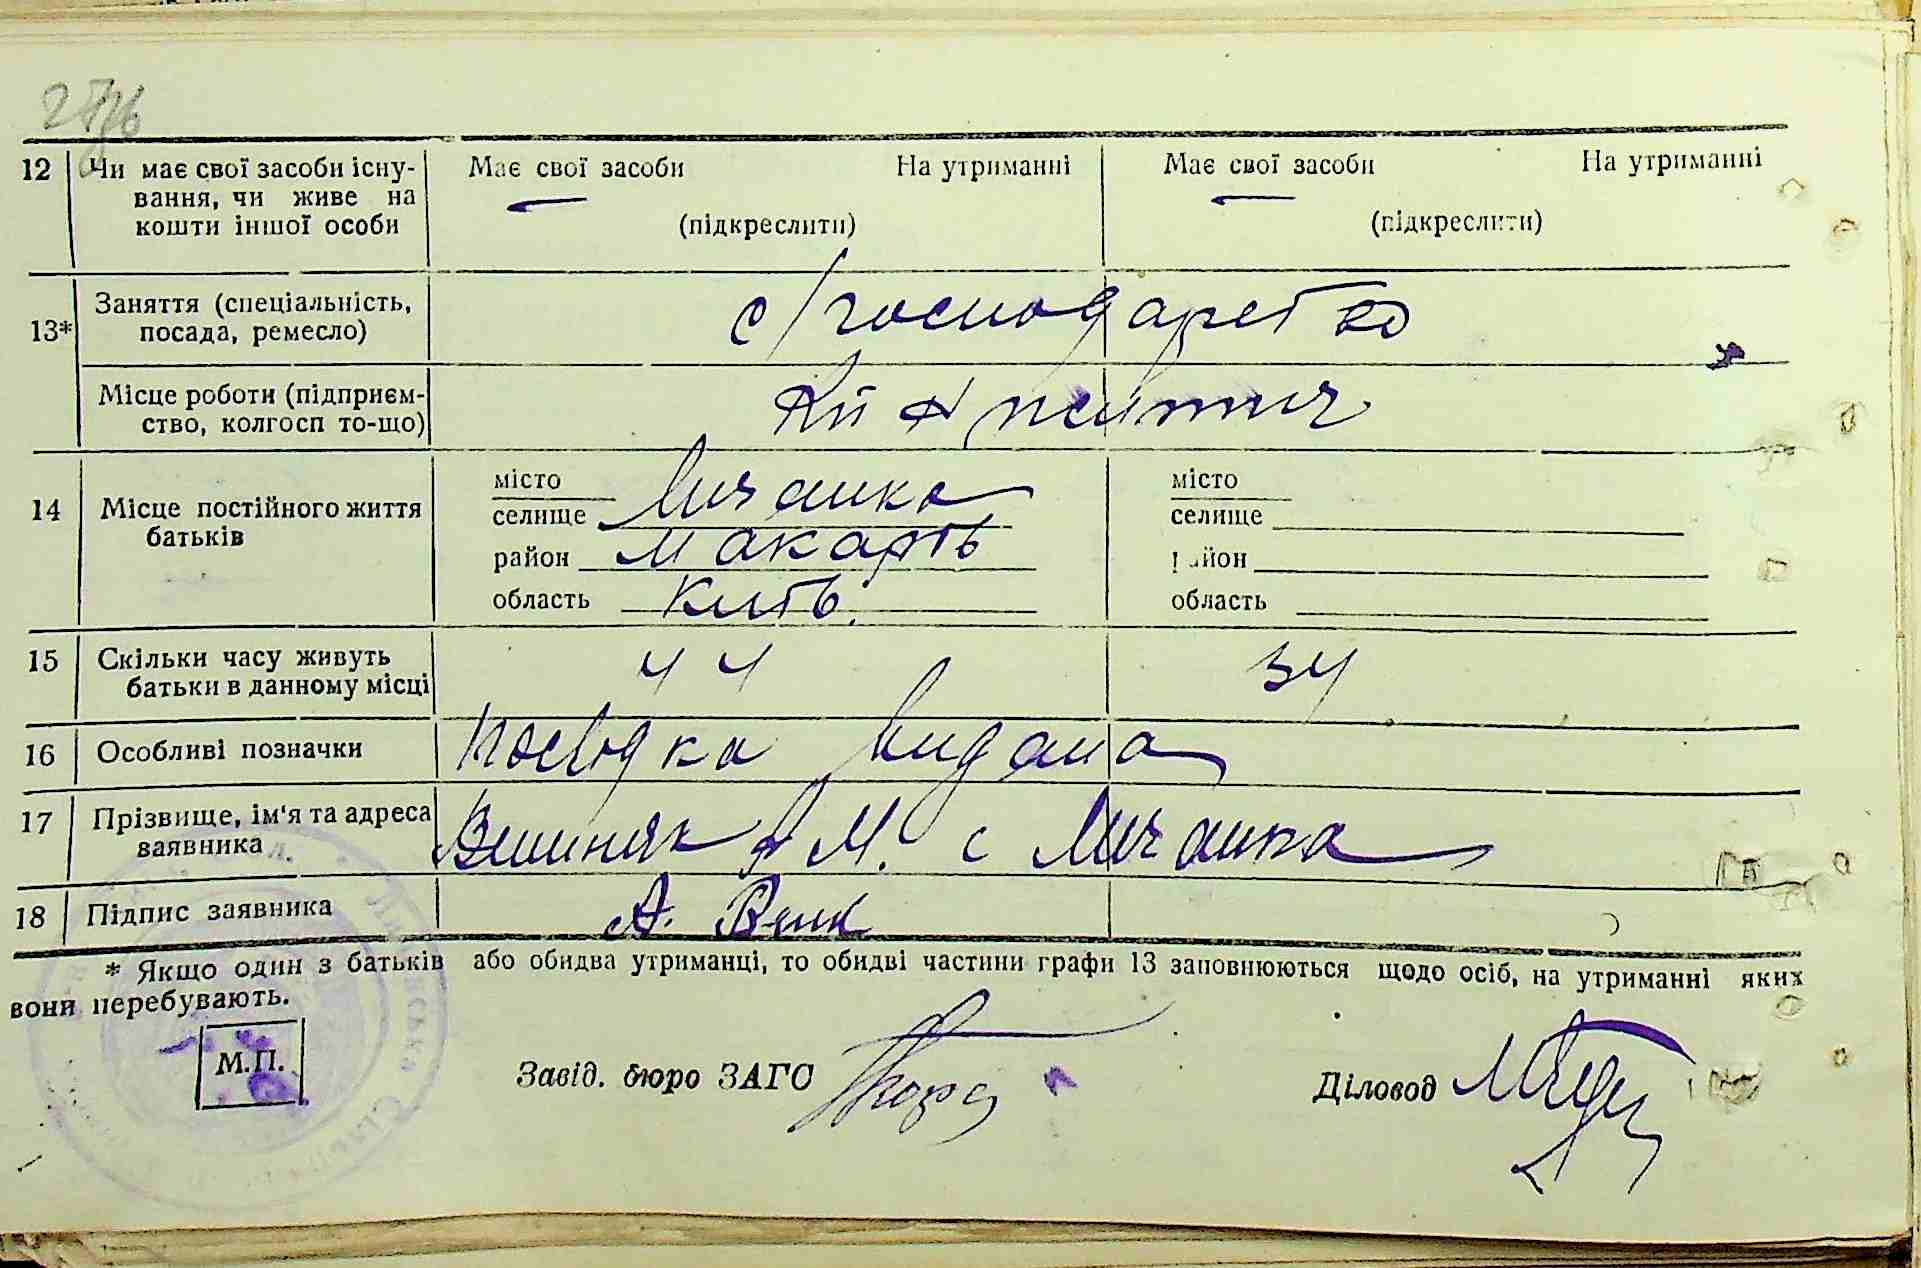 12 Чи має свої засоби існу-
вання, чи живе на
кошти іншої особи
Має свої засоби На утриманні
(підкреслити)
Має свої засоби На утриманні
(підкреслити)
13* Заняття (спеціальність,
посада, ремесло)
с/господарство
Місце роботи (підприєм-
ство, колгосп то-що)
14 Місце постійного життя
батьків
місто
селище Личанка
район Макарів
область Київ.
місто
селище
район
область
15 Скільки часу живуть
батьки в данному місці
44 34
16 Особливі позначки
Посвідка видана
17 Прізвище, ім'я та адреса
заявника
М. с Личанка
18 Підпис заявника
А.
* Якщо один з батьків або обидва утриманці, то обидві частини графи 13 заповнюються щодо осіб, на утриманні яких
вони перебувають.
М.П.
Завід. бюро ЗАГС
Діловод